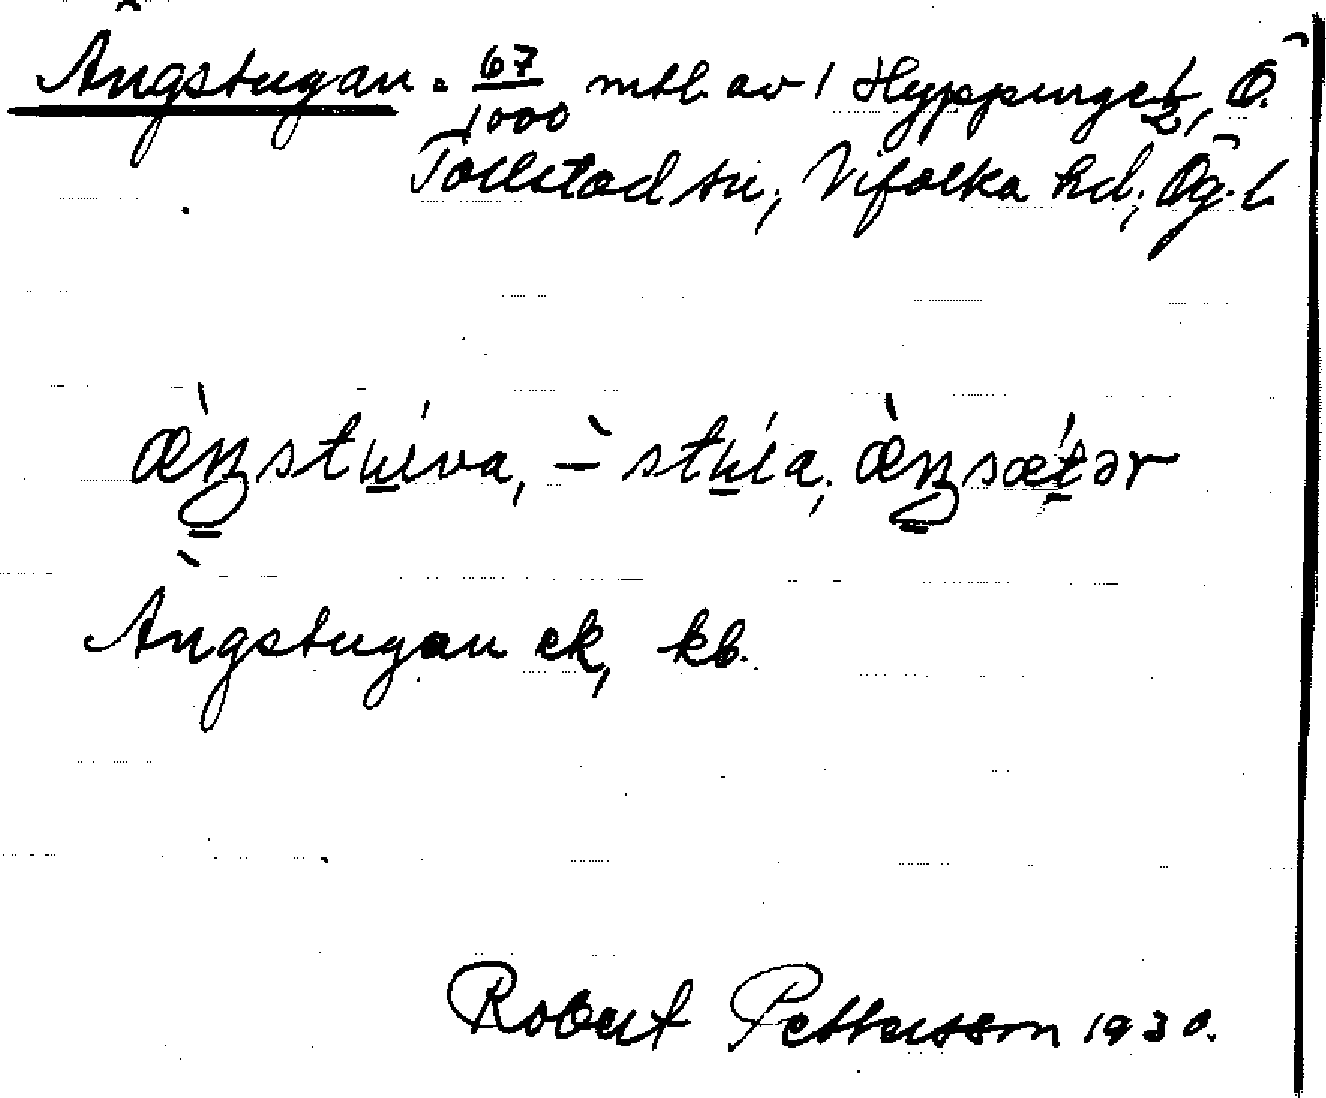 Ängstugan = 67/1000 mtl. av 1 Hyppinge 1/2, Ö.
Tollstad sn, Vifolka hd, Ög. l.
æ̀ŋstúva, -̀ stúa, æ̀ŋsǽtər
Ängstugan ek, kb.
Robert Pettersson 1930.